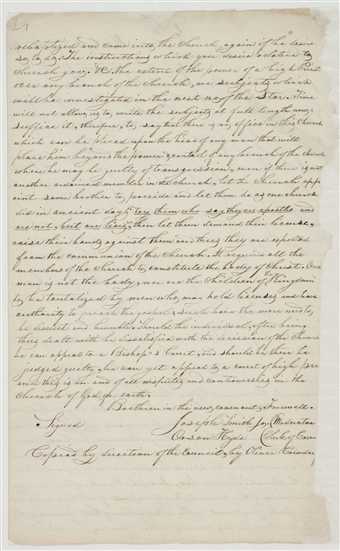 rebaptized and come into the Church again if he desire
so to do. The instructions which you desire relative to
Church gov. &C. the extent of the power of a high Priest
over any branch of the Church, are subjects which
will be investigated in the next no. of the Star. Time
will not allow us, to write the subjects at full length now;
suffice it, therefore, to say that there is no office in this Church
which can be placed upon the head of any man that will
place him beyond the power & contact of any branch of the Church
where he may be guilty of transgression, even if there is not
another ordained member in the church, let the Church app
oint some brother to preside and let them do as one church
did in ancient days try them who say they are apostles and
are not, but are liars, then let them demand their license,
raise their hands against them and thus they are expelled
from the communion of the Church. It requires all the
members of the Church to constitute the body of Christ. One
man is not the body, nor are the Children of the Kingdom
to be tantalized by men who may hold licenses and have
authority to preach the gospel; such have the more need to
be discreet and humble. Should the individual, after being
thus dealt with be dissatisfied with the decision of the Church
he can appeal to a Bishop's Court, and should he there be
judged guilty, he can yet appeal to a court of high prie
and this is an end of all disputes and controversies in the
Church of God on earth.
Brethren in the new covenant, Farewell.
Signed Joseph Smith Jr. Moderator
Orson Hyde Clerk of Coun
Copied by direction of the Council, by Oliver Cowdery